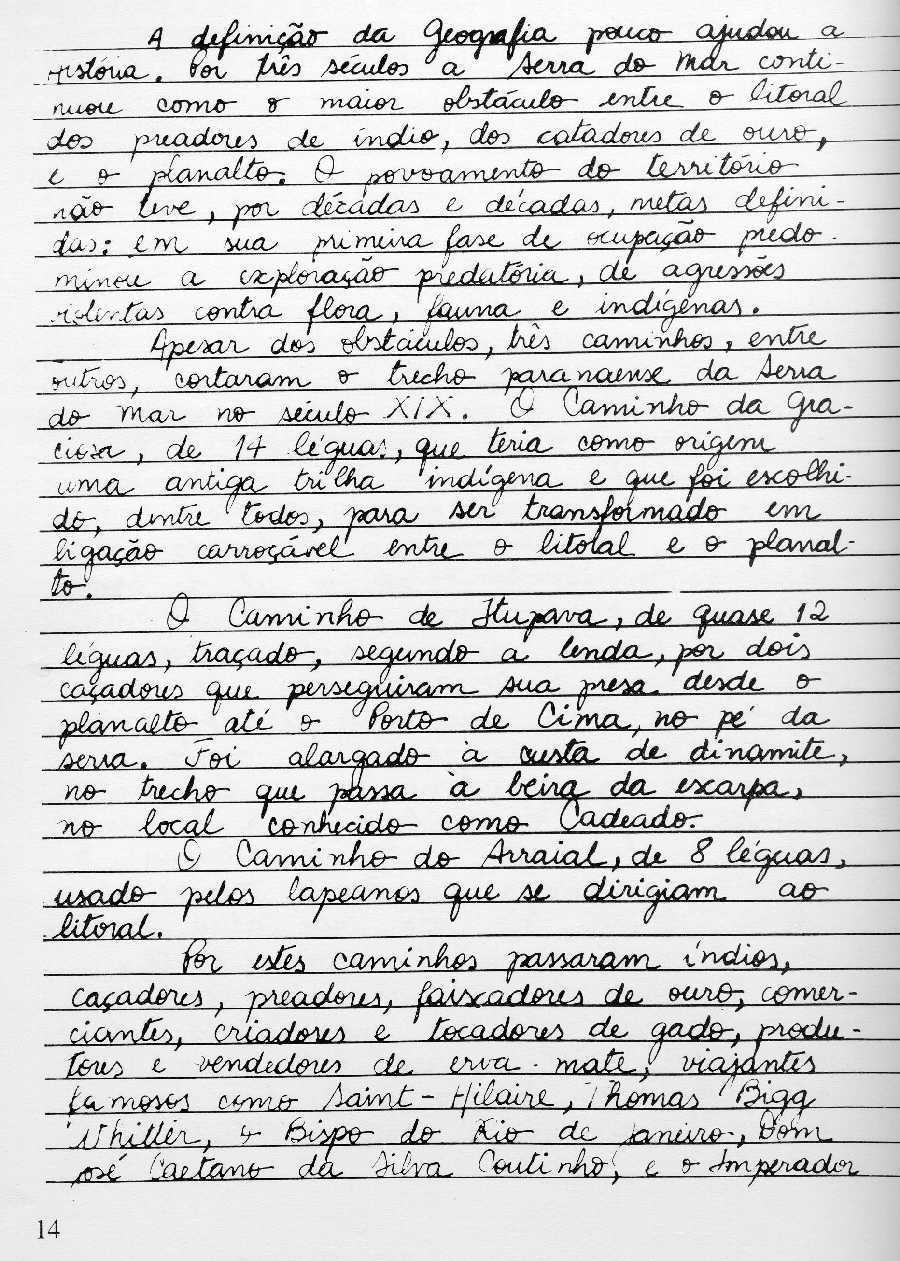 A definição da Geografia pouco ajudou a
História. Por três séculos a Serra do Mar conti-
nuou como o maior obstáculo entre o litoral
dos preadores de índio, dos catadores de ouro,
e o planalto. O povoamento do território
não teve, por décadas e décadas, metas defini-
das: em sua primeira fase de ocupação predo-
minou a exploração predatória, de agressões
violentas contra flora, fauna e indígenas.
Apesar dos obstáculos, três caminhos, entre
outros, cortaram o trecho paranaense da Serra
do Mar no século XIX. O Caminho da Gra-
ciosa, de 14 léguas, que teria como origem
uma antiga trilha indígena e que foi escolhi-
do, dentre todos, para ser transformado em
ligação carroçável entre o litoral e o planal-
to.
O Caminho de Itupava, de quase 12
léguas, traçado, segundo a lenda, por dois
caçadores que perseguiram sua presa desde o
planalto até o Porto de Cima, no pé da
serra. Foi alargado à custa de dinamite,
no trecho que passa à beira da escarpa,
no local conhecido como Cadeado.
O Caminho do Arraial, de 8 léguas,
usado pelos lapeanos que se dirigiam ao
litoral.
Por estes caminhos passaram índios,
caçadores, preadores, faiscadores de ouro, comer-
ciantes, criadores e tocadores de gado, produ-
tores e vendedores de erva-mate, viajantes
famosos como Saint-Hilaire, Thomas Bigg
Whitter, o Bispo do Rio de Janeiro, Dom
José Caetano da Silva Coutinho, e o Imperador
14